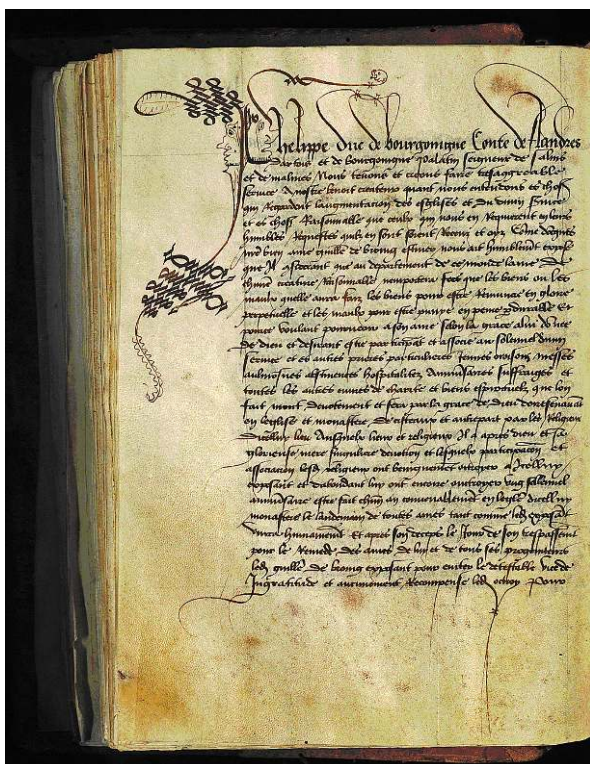 Phelippe Duc de bourgoingne Conte de flandres
Dartois et de bourgoingne palatin seigneur de salins
et de malines Nous tenons et creons faire tresaggreable
service A nostre benoit createur quant nous entendons es choses
qui regardent laugmentacion des esglises et du divin service
et es choses Raisonnable que ceulx qui nous en Requierent en leurs
humbles Requestes quilz en font soient Receuz et oyz Comme
bien ame guille de nous ait humblement expose
que Il attendant que au departement de ce monde lame De
creature Raisonnable fors que les biens ou les
maulx quelle aura faiz les biens pour estre en gloire
perpetuelle et les maulx pour estre punye en peine Et
pource voulant pourveoir a son ame selon la grace a lui
de dieu et desirant estre participant et associe au solemnel divin
service et es autres prieres particulieres oroisons messes
aulmosnes abstinences hospitalitez suffraiges et
toutes les autres euvres de charite et biens que lon
fait moult Devotement et fera par la grace de dieu doresenavant
en leglise et monastere De cisteaux et par les Religieux
dicellui lieu Ausquelz lieu et religieux Il a apres dieu et sa
glorieuse mere singuliere devotion et participacion et
association lesd religieux ont benignement ottroyer a Icellui
exposant et dabondant lui ont encore ottroyer ung sollennel
anniversaire estre fait chun an en leglise dicellui
monastere le landemain de toutes ames tant comme led exposant
vivra humainement Et apres son deceps le Jour de son trespassement
pour le Remede des ames de lui et de tous ses progeniteurs
led guille De exposant pour eviter le detestable vice de
Ingratitude et Recompense led ottroy Pour